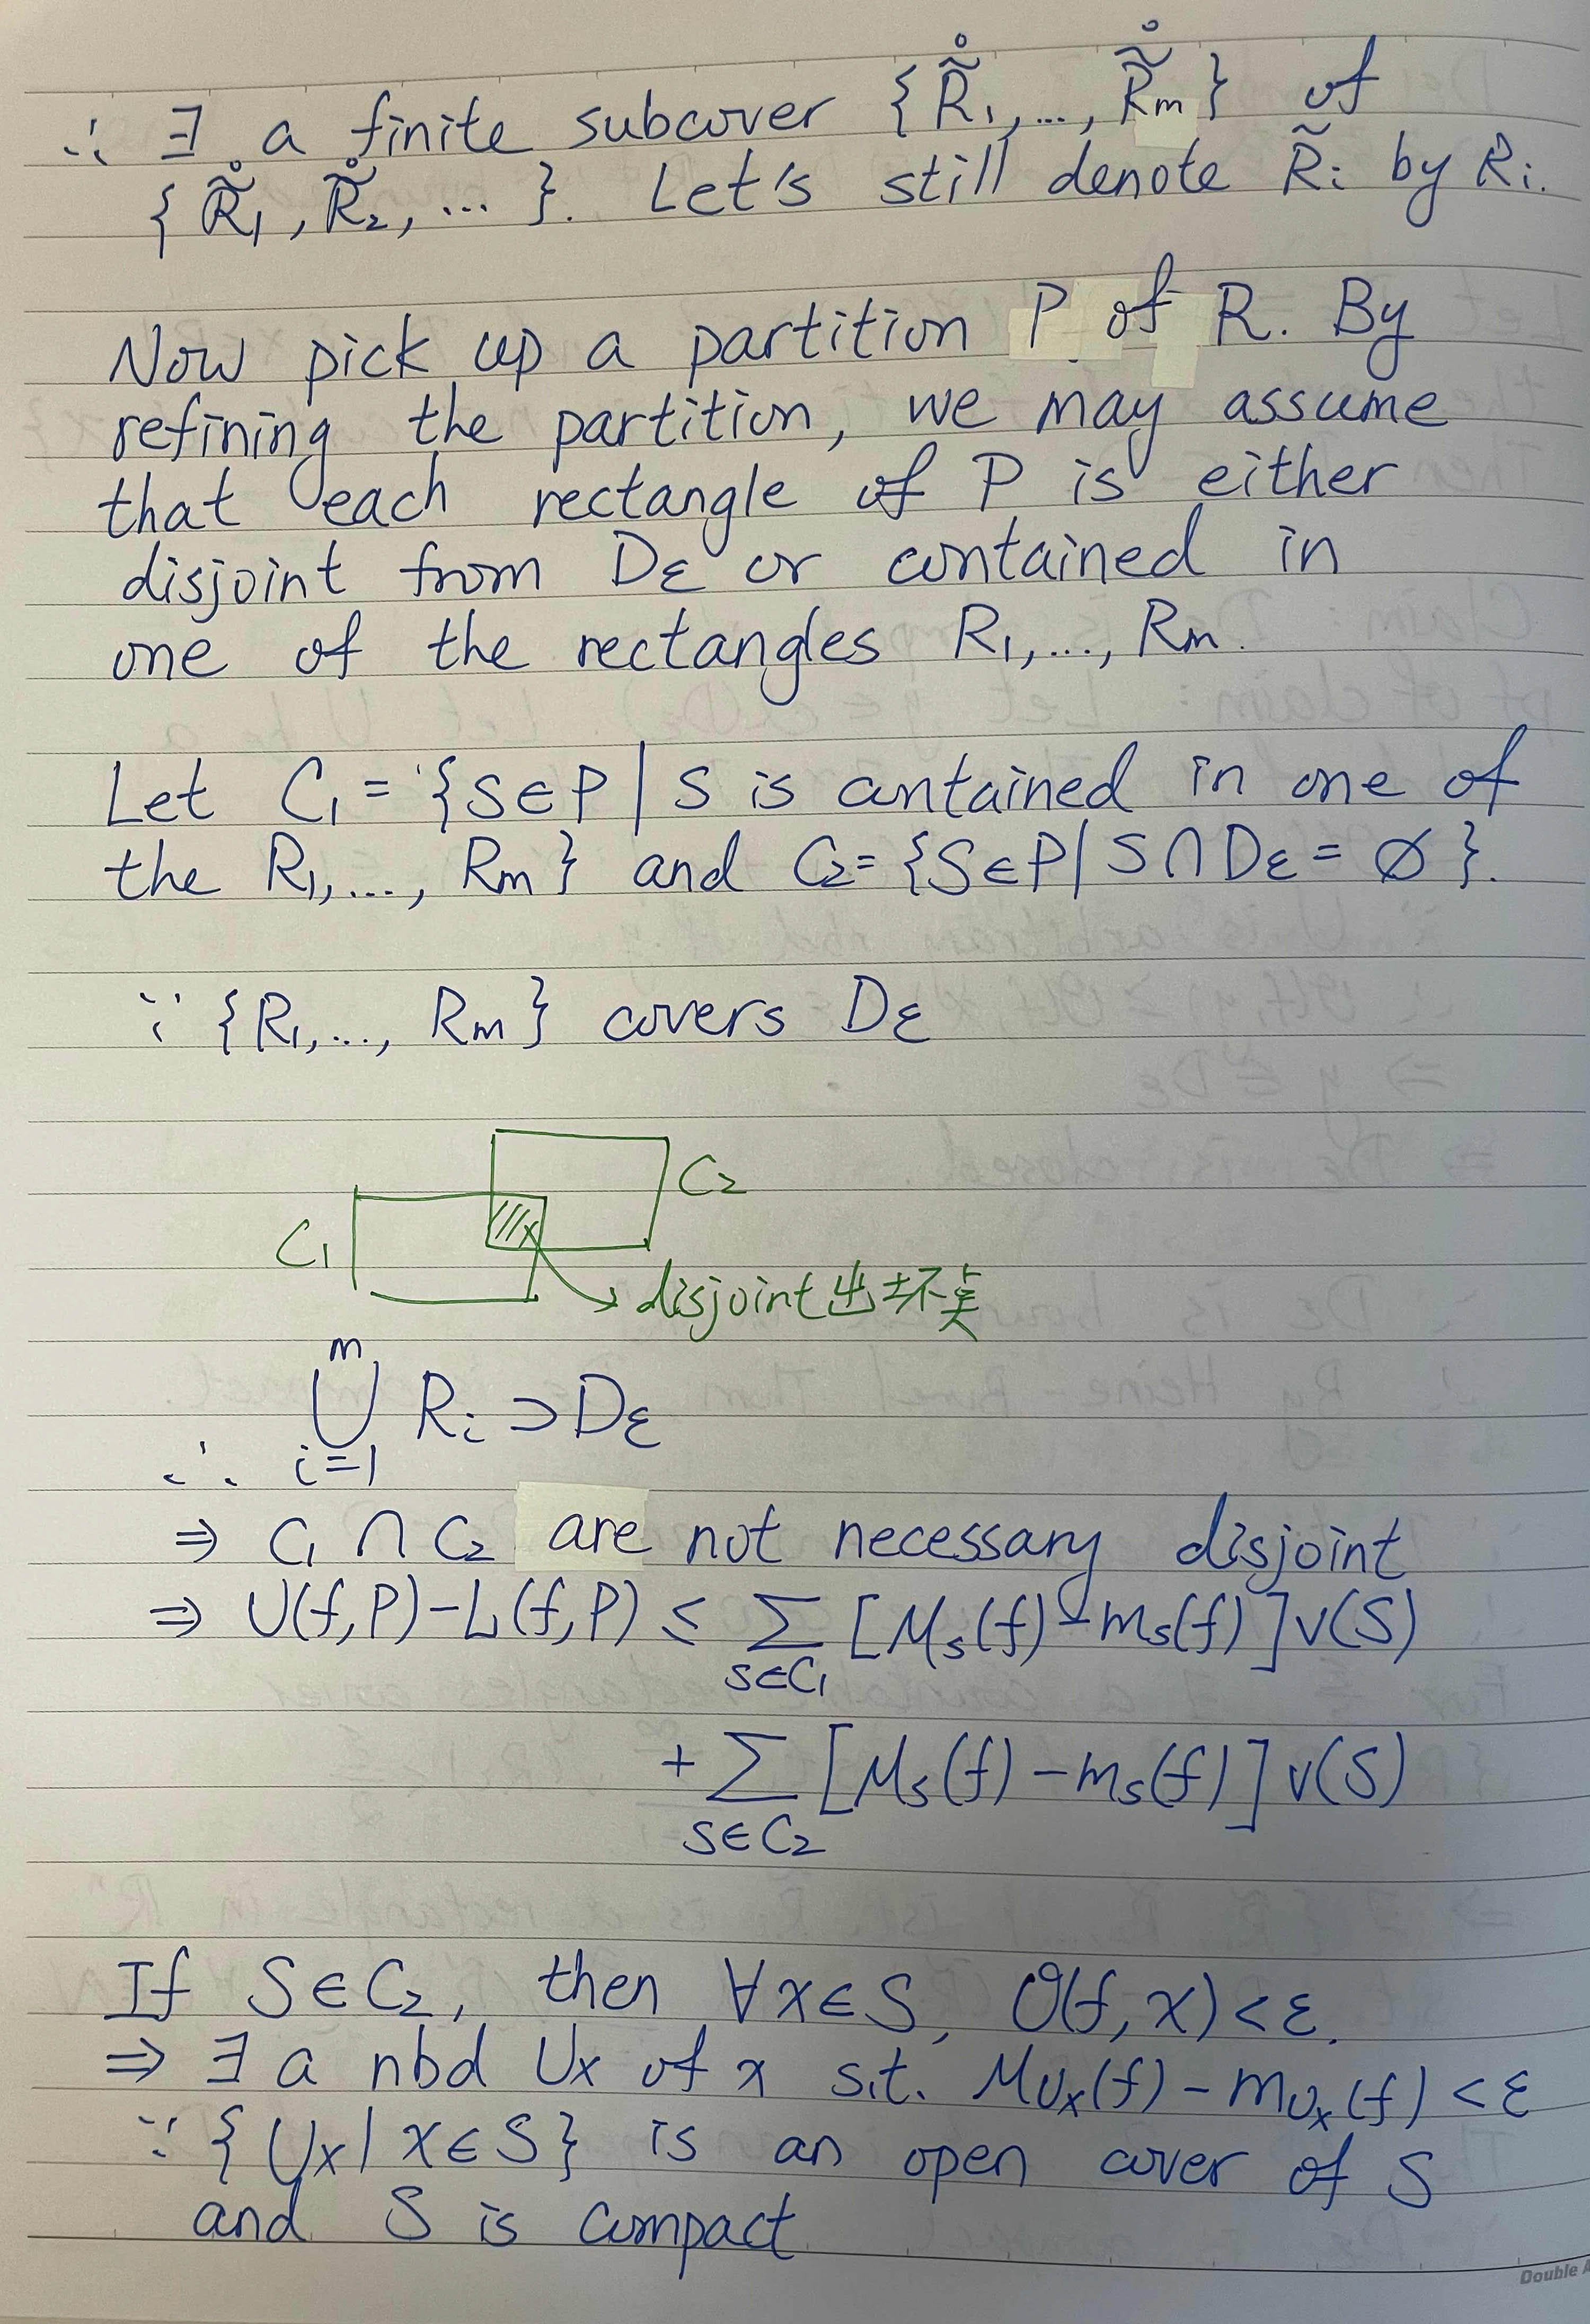 ∴ ∃ a finite subcover {R̃̊₁,..., R̃̊m} of
{R̃̊₁, R̃̊₂, ... }. Let's still denote R̃i by Ri.
Now pick up a partition P of R. By
refining the partition, we may assume
that each rectangle of P is either
disjoint from Dε or contained in
one of the rectangles R₁,..., Rm.
Let C₁ = {S∈P | S is contained in one of
the R₁,..., Rm} and C₂= {S∈P | S∩Dε = ∅}.
∵ {R₁,..., Rm} covers Dε
C₂
C₁
disjoint出
∴ ⋃_{i=1}^{m} Ri ⊃ Dε
⇒ C₁ ∩ C₂ are not necessary disjoint
⇒ U(f,P)-L(f,P) ≤ Σ_{S∈C₁} [Ms(f)-ms(f)]v(S)
+ Σ_{S∈C₂} [Ms(f)-ms(f)]v(S)
If S∈C₂, then ∀x∈S, O(f,x)<ε.
⇒ ∃ a nbd Ux of x s.t. M_{Ux}(f)-m_{Ux}(f)<ε
∵ {Ux | x∈S} is an open cover of S
and S is compact
Double A